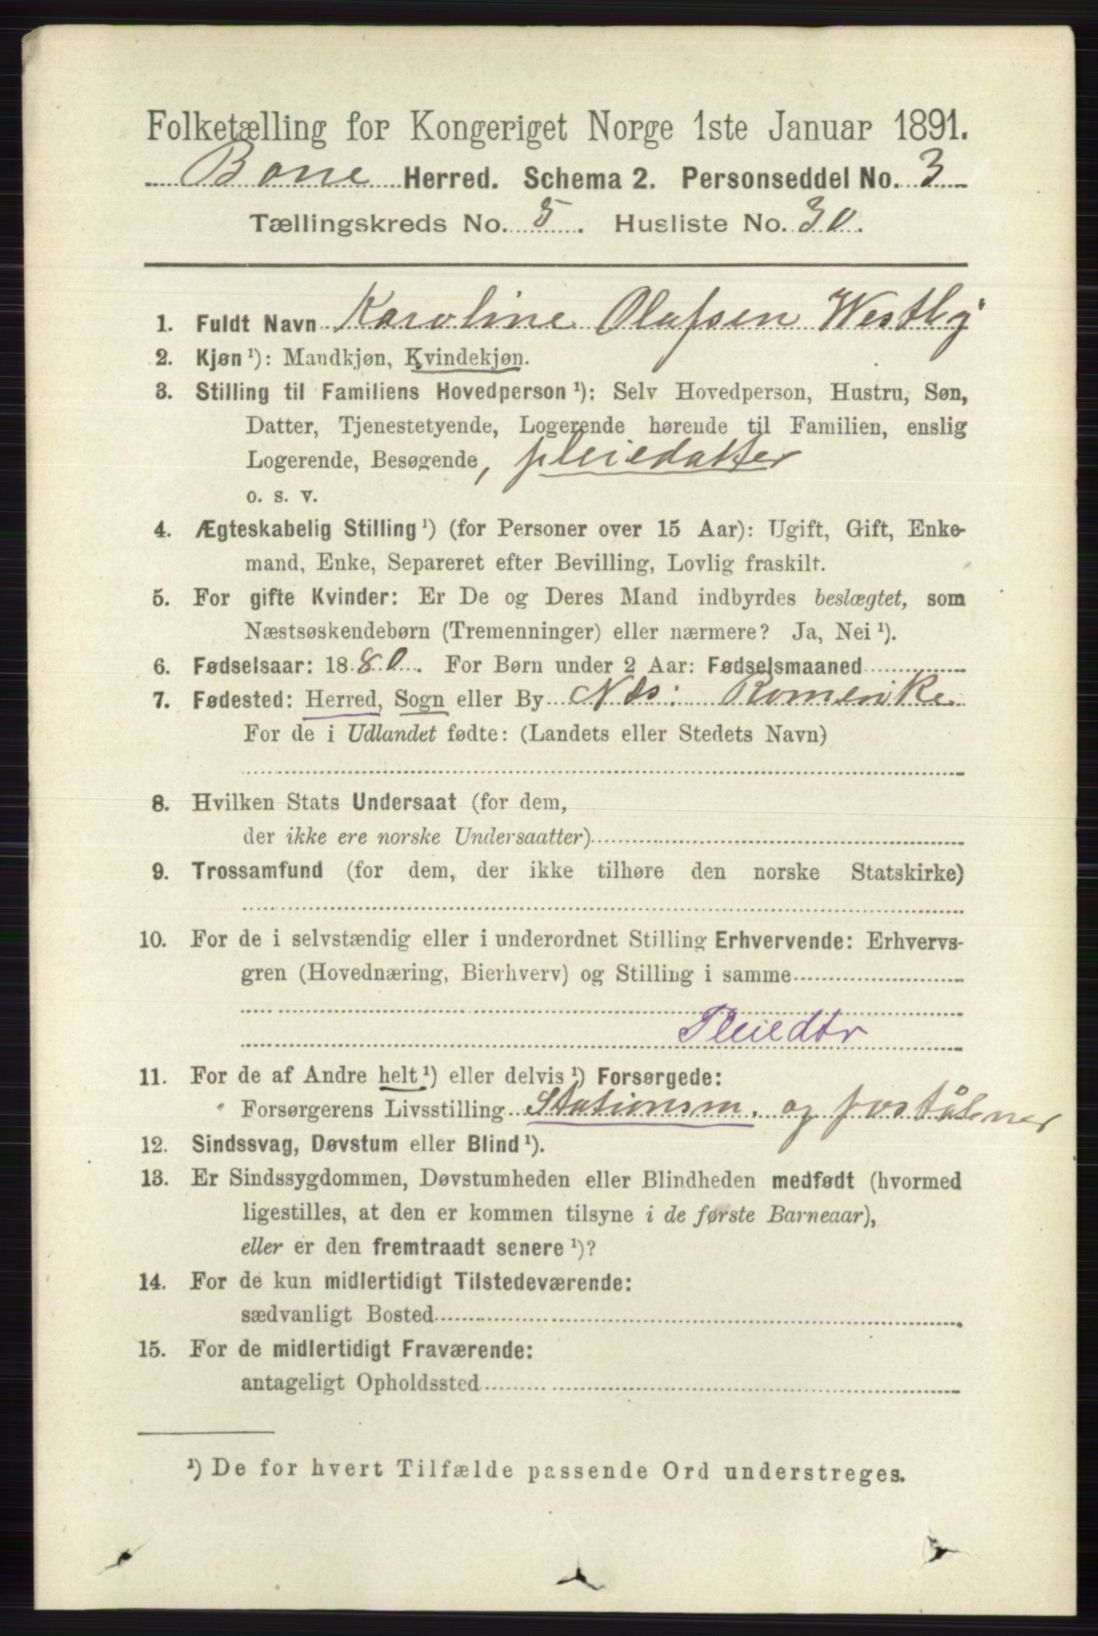 Folketælling for Kongeriget Norge 1ste Januar 1891.
Borre Herred. Schema 2. Personseddel No. 3
Tællingskreds No. 5. Husliste No. 30.
1. Fuldt Navn Karoline Olafsen Westby
2. Kjøn ¹): Mandkjøn, Kvindekjøn.
3. Stilling til Familiens Hovedperson ¹): Selv Hovedperson, Hustru, Søn,
Datter, Tjenestetyende, Logerende hørende til Familien, enslig
Logerende, Besøgende, pleiedatter
o. s. v.
4. Ægteskabelig Stilling ¹) (for Personer over 15 Aar): Ugift, Gift, Enke-
mand, Enke, Separeret efter Bevilling, Lovlig fraskilt.
5. For gifte Kvinder: Er De og Deres Mand indbyrdes beslægtet, som
Næstsøskendebørn (Tremenninger) eller nærmere? Ja, Nei ¹).
6. Fødselsaar: 1880. For Børn under 2 Aar: Fødselsmaaned
7. Fødested: Herred, Sogn eller By Næs: Romerike
For de i Udlandet fødte: (Landets eller Stedets Navn)
8. Hvilken Stats Undersaat (for dem,
der ikke ere norske Undersaatter)
9. Trossamfund (for dem, der ikke tilhøre den norske Statskirke)
10. For de i selvstændig eller i underordnet Stilling Erhvervende: Erhvervs-
gren (Hovednæring, Bierhverv) og Stilling i samme
Pleiedtr
11. For de af Andre helt ¹) eller delvis ¹) Forsørgede:
Forsørgerens Livsstilling Stationsm. og poståbner
12. Sindssvag, Døvstum eller Blind ¹).
13. Er Sindssygdommen, Døvstumheden eller Blindheden medfødt (hvormed
ligestilles, at den er kommen tilsyne i de første Barneaar),
eller er den fremtraadt senere ¹)?
14. For de kun midlertidigt Tilstedeværende:
sædvanligt Bosted
15. For de midlertidigt Fraværende:
antageligt Opholdssted
¹) De for hvert Tilfælde passende Ord understreges.